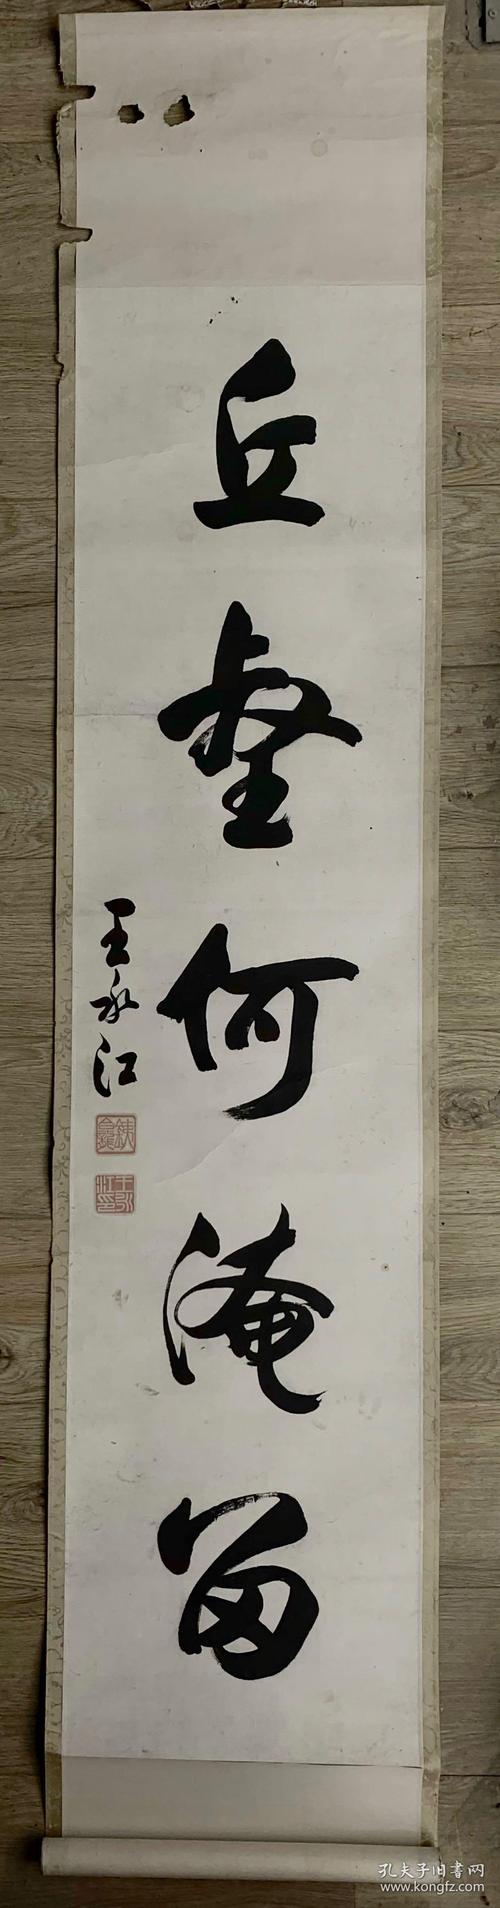 丘壑何淹留
王永江
鐵龕
王永江印
孔夫子旧书网
www.kongfz.com